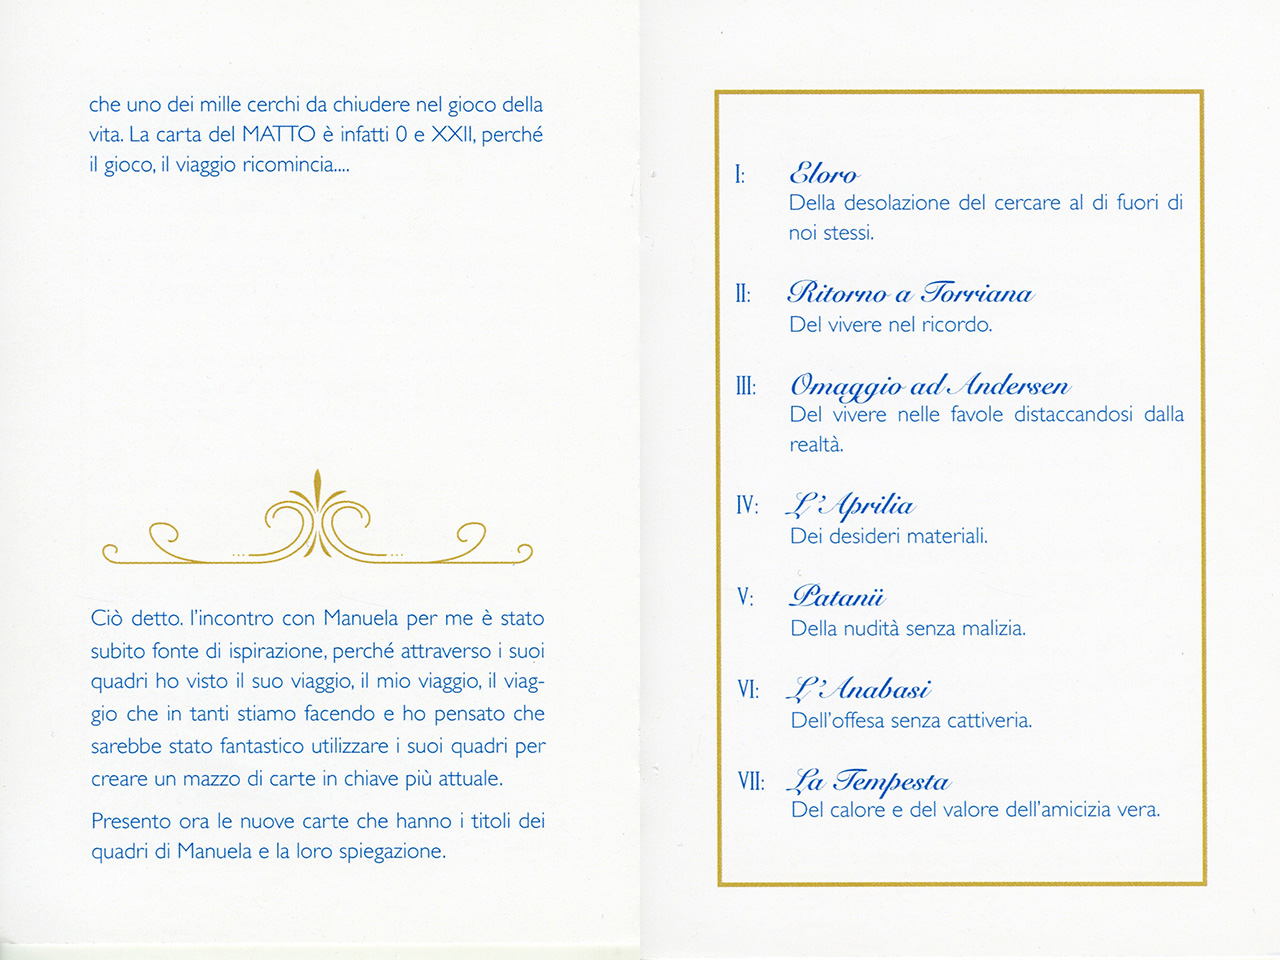 che uno dei mille cerchi da chiudere nel gioco della
vita. La carta del MATTO è infatti 0 e XXII, perché
il gioco, il viaggio ricomincia....
Ciò detto. l'incontro con Manuela per me è stato
subito fonte di ispirazione, perché attraverso i suoi
quadri ho visto il suo viaggio, il mio viaggio, il viag-
gio che in tanti stiamo facendo e ho pensato che
sarebbe stato fantastico utilizzare i suoi quadri per
creare un mazzo di carte in chiave più attuale.
Presento ora le nuove carte che hanno i titoli dei
quadri di Manuela e la loro spiegazione.
I: Eloro
Della desolazione del cercare al di fuori di
noi stessi.
II: Ritorno a Torriana
Del vivere nel ricordo.
III: Omaggio ad Andersen
Del vivere nelle favole distaccandosi dalla
realtà.
IV: L'Aprilia
Dei desideri materiali.
V: Patanü
Della nudità senza malizia.
VI: L'Anabasi
Dell'offesa senza cattiveria.
VII: La Tempesta
Del calore e del valore dell'amicizia vera.